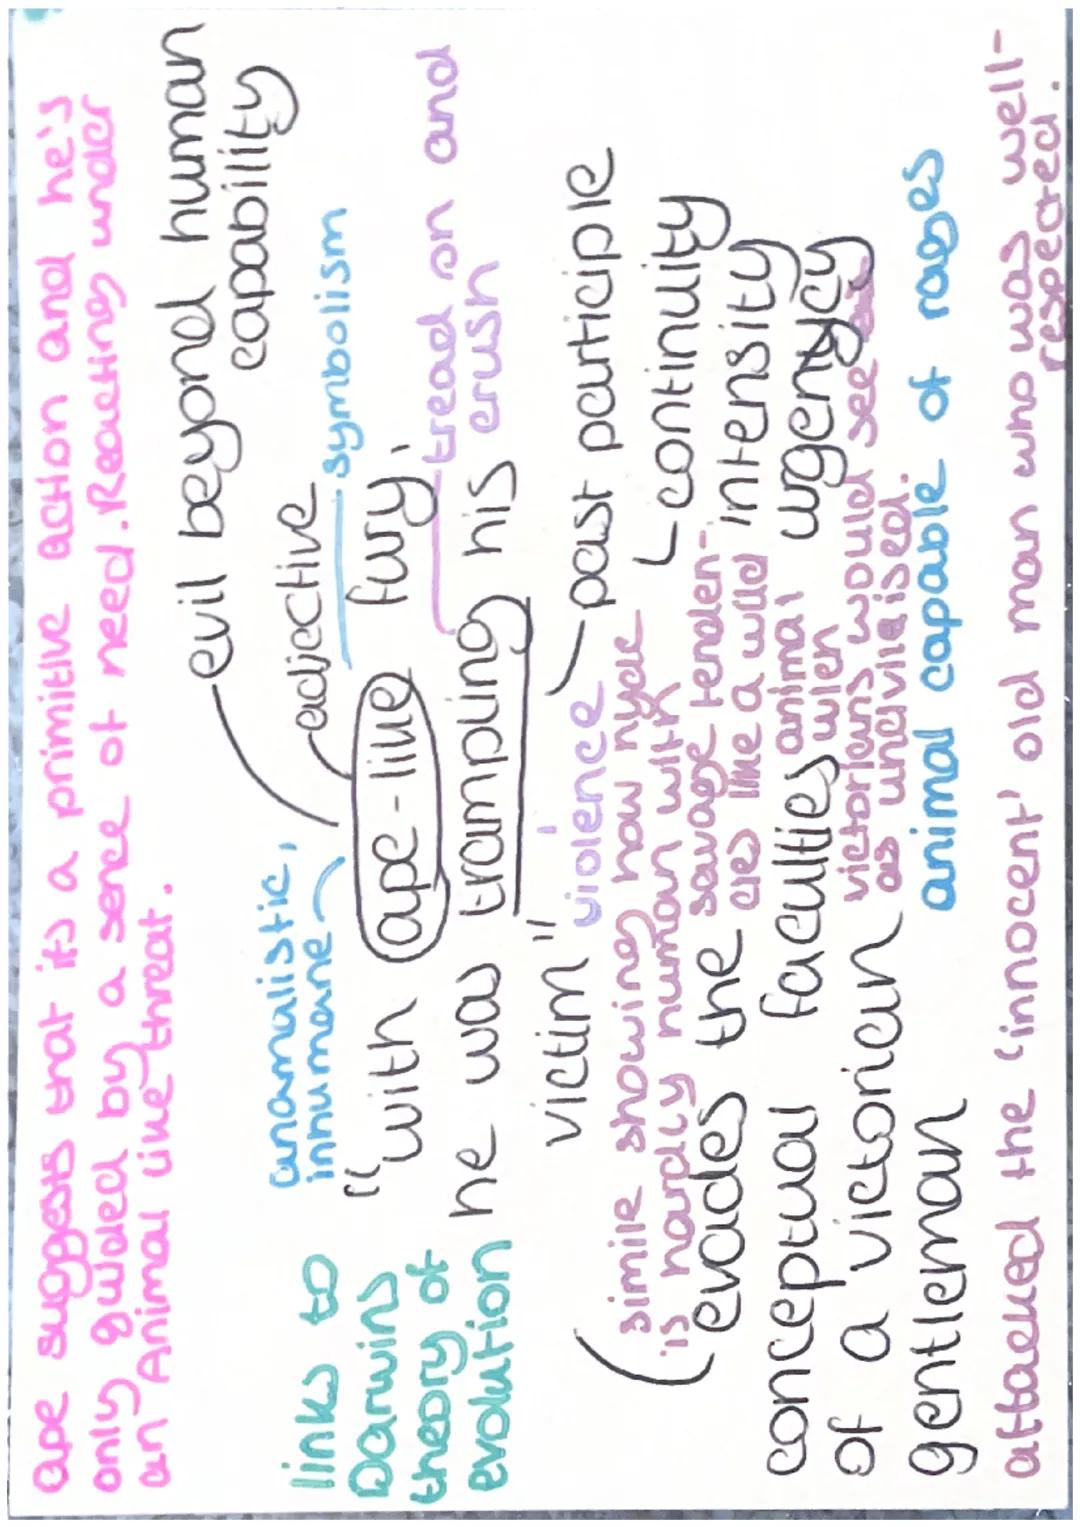 ape suggests that its a primitive action and he's
only guided by a sence of need. Reacting under
an Animal like threat.
evil beyond human
capability
adjective
symbolism
anamalistic,
inhumane
links to
Darwins
theory of
evolution
"with ape-like fury,
he was trampling his
victim"
tread on and
crush
violence
past participle
continuity
intensity
urgency
simile showing how hyde
'is hardly human' with
savage tenden-
cies like a wild
animal
when
victorians would see
as uncivilised.
evades the
conceptual faculties
of a victorian
gentleman
animal capable of rages
attacked the 'innocent' old man who was well-
respected.